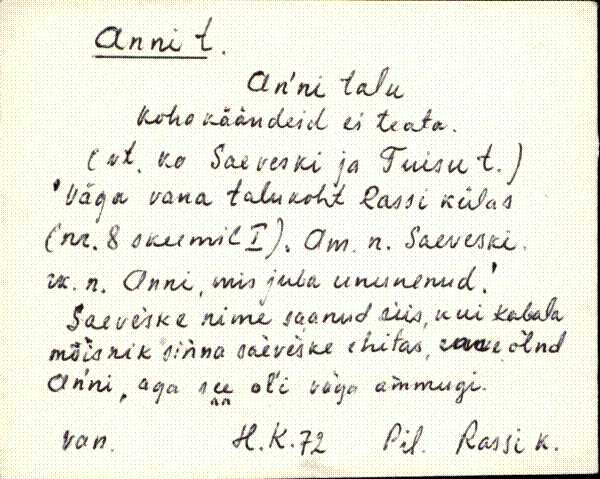 Anni t.
An'ni talu
Kohakäändeid ei teata.
(vt. ka Saeveski ja Tuisu t.)
'Väga vana talukoht Rassi külas
(nr. 8 skeemil I). Am. n. Saeveski.
rk. n. Anni, mis juba ununenud.'
Saeveske nime saanud siis, kui Kabala
mõisnik sinna saeveske ehitas, õlnd
An'ni, aga see oli väga ammugi.
van. H.K.72 Pil. Rassi k.